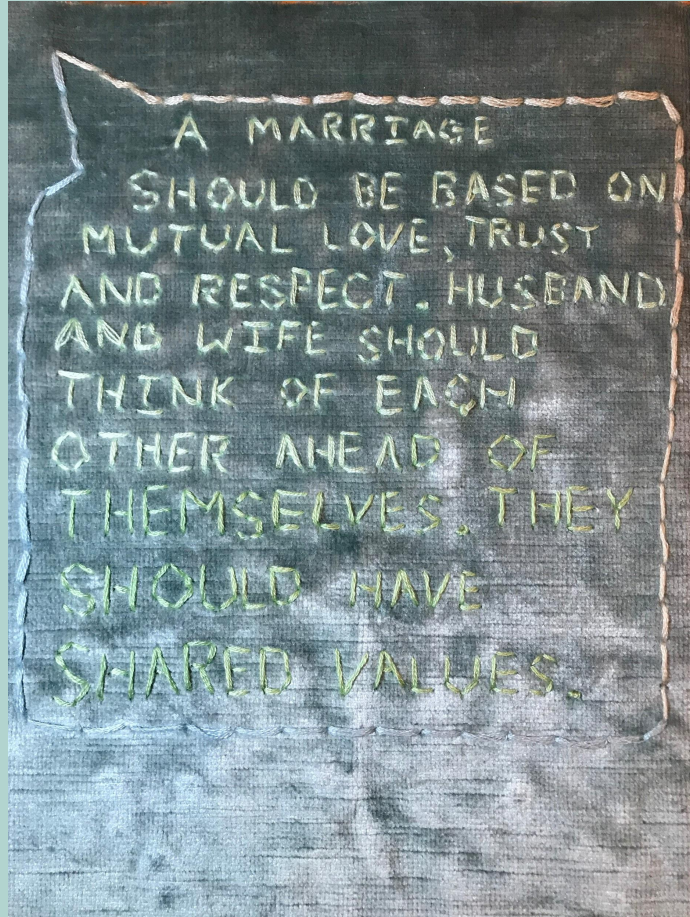 A MARRIAGE
SHOULD BE BASED ON
MUTUAL LOVE, TRUST
AND RESPECT. HUSBAND
AND WIFE SHOULD
THINK OF EACH
OTHER AHEAD OF
THEMSELVES. THEY
SHOULD HAVE
SHARED VALUES.